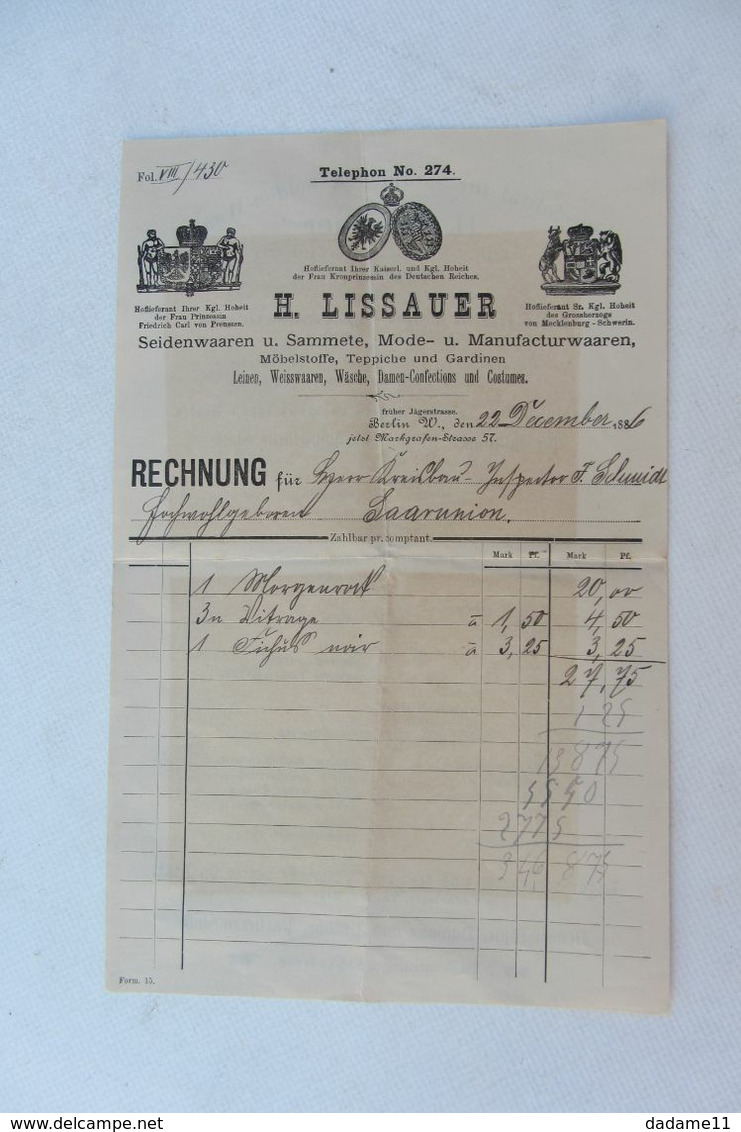 Fol. VIII/430
Telephon No. 274.
Hoflieferant Ihrer Kaiserl. und Kgl. Hoheit
der Frau Kronprinzessin des Deutschen Reiches.
Hoflieferant Ihrer Kgl. Hoheit
der Frau Prinzessin
Friedrich Carl von Preussen.
H. LISSAUER
Hoflieferant Sr. Kgl. Hoheit
des Grossherzogs
von Mecklenburg-Schwerin.
Seidenwaaren u. Sammete, Mode- u. Manufacturwaaren,
Möbelstoffe, Teppiche und Gardinen
Leinen, Weisswaaren, Wäsche, Damen-Confections und Costumes.
früher Jägerstrasse.
Berlin W., den 22 December 1886
jetzt Markgrafen-Strasse 57.
RECHNUNG für Herr Kreisbau-Inspector F. Schmidt
Hochwohlgeboren Saarunion.
Zahlbar pr. comptant.
Mark Pf. Mark Pf.
1 Morgenrock 20,00
3 m Vitrage a 1,50 4,50
1 Fichus noir a 3,25 3,25
27,75
1 25
13875
5550
2775
34,6875
Form. 15.
delcampe.net
dadame11